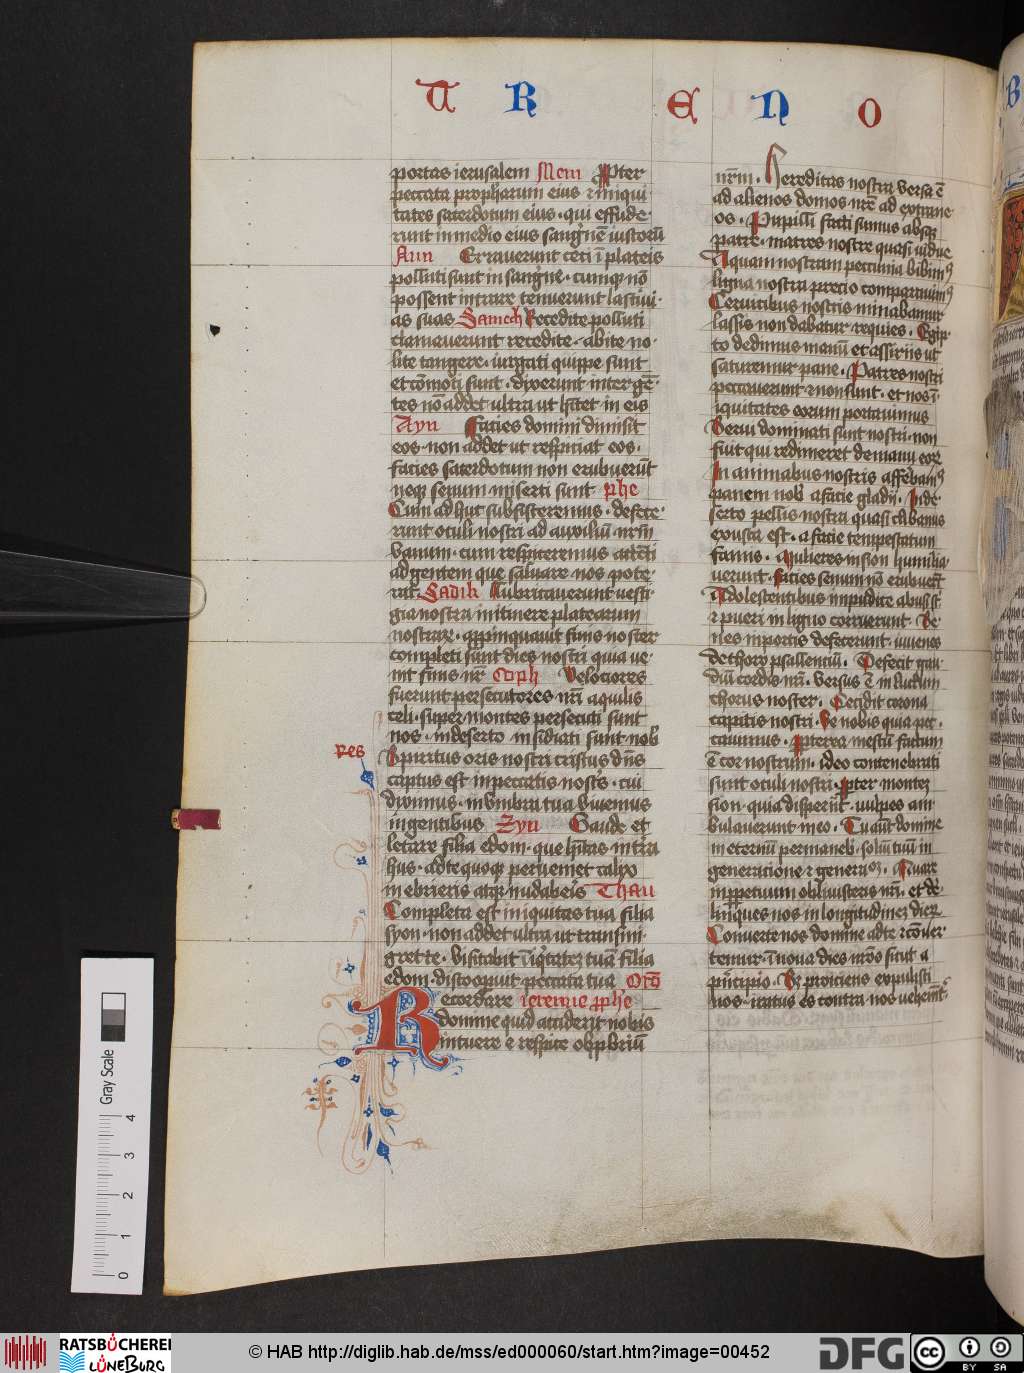 T R E N O
portas ierusalem Mem Ꝓpter
peccata prophetarum eius ⁊ iniqui
tates sacerdotum eius · qui effude
runt in medio eius sangͥnē iustorū
Nun Errauerunt ceci ī plateis
polluti sunt in sangͥne · cumqꝫ nō
possent intrare tenuerunt lacīni
as suas Samech Recedite polluti
clamauerunt recedite · abite no
lite tangere · iurgati quippe sunt
et cōmoti sunt · dixerunt inter gē
tes nō addet ultra ut hītet in eis
Ayn Facies domini diuisit
eos · non addet ut respiciat eos ·
facies sacerdotum non erubuerūt
neqꝫ senum miserti sunt phe
Cum adhuc subsisteremus · defece
runt oculi nostri ad auxiliū nrm̄
vanum · cum respiceremus attēti
ad gentem que saluare nos pote
rat Sadik Lubricauerunt vesti
gia nostra in itinere platearum
nostrarꝝ · appinquauit finis noster
completi sunt dies nostri quia ve
nit finis nr̄ Coph Velociores
fuerunt persecutores nr̄i aquilis
celi · super montes persecuti sunt
nos · in deserto insidiati sunt nob̄
Res
Spiritus oris nostri cristus dn̄s
captus est in peccatis nostrˢ · cui
diximus · in vmbra tua viuemus
in gentibus Zyn Gaude et
letare filia edom · que hītas in terra
hus · ad te quoqꝫ perueniet calix
inebrieris atqꝫ nudaberis Thau
Completa est iniquitas tua filia
syon · non addet ultra ut transmi
gret te · visitabit īiqͥtatē tuā filia
edom · discooperuit peccata tua Orō
Recordare ieremie ꝓphe
domine quid acciderit nobis
intuere ⁊ respice obprobriū
nr̄m · Hereditas nostra versa ē
ad alienos domos nrē ad extrane
os · Pupilli facti sumus absqꝫ
patre · matres nostre quasi vidue
Aquam nostram peccunia bibimꝰ
ligna nostra precio comparauimꝰ
Ceruicibus nostris minabamur
lassis non dabatur requies · Egip
to dedimus manū et assiriis ut
saturemur pane · Patres nostri
peccauerunt ⁊ non sunt · et nos ī
iquitates eorum portauimus
Serui dominati sunt nostri · non
fuit qui redimeret de manu eorꝝ
In animabus nostris afferebamꝰ
panem nob̄ a facie gladii · In de
serto pellis nostra quasi clibanus
exusta est · a facie tempestatum
famis · Mulieres in sion humilia
uerunt · facies senum nō erubuerūt
Adolescentibus impudice abusi sūt
⁊ pueri in ligno corruerunt · Se
nes in portis defecerunt · iuuenes
de choro psallencium · Defecit gau
diū cordis nrī · versus ē in luctum
chorus noster · Cecidit corona
capitis nostri · Ve nobis quia pec
cauimus · Ꝓpterea mestū factum
ē cor nostrum · ideo contenebrati
sunt oculi nostri · Ꝓpter montē
sion · quia disperiit · vulpes am
bulauerunt in eo · Tu autē domine
in eternū permaneb̄ · soliū tuū in
generacione ⁊ generacꝫ · Quare
in ppetuum obliuisceris nrī · et de
linques nos in longitudinē dierꝝ
Conuerte nos domine ad te ⁊ cōuer
temur · īnoua dies nrōs sicut a
prīcipio · Sꝫ proiciens expulisti
nos · iratus es contra nos vehemēt̄
Gray Scale
0 1 2 3 4
RATSBÜCHEREI
LÜNEBURG
© HAB http://diglib.hab.de/mss/ed000060/start.htm?image=00452
DFG
cc BY SA